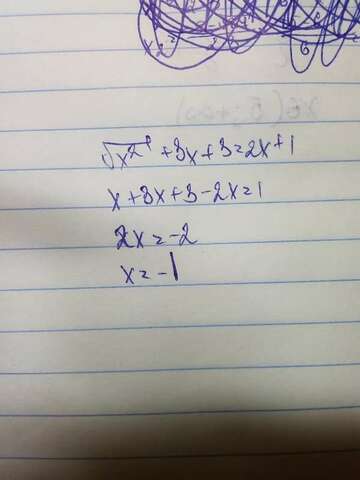 √x² + 3x + 3 = 2x + 1
x + 3x + 3 - 2x = 1
2x = -2
x = -1